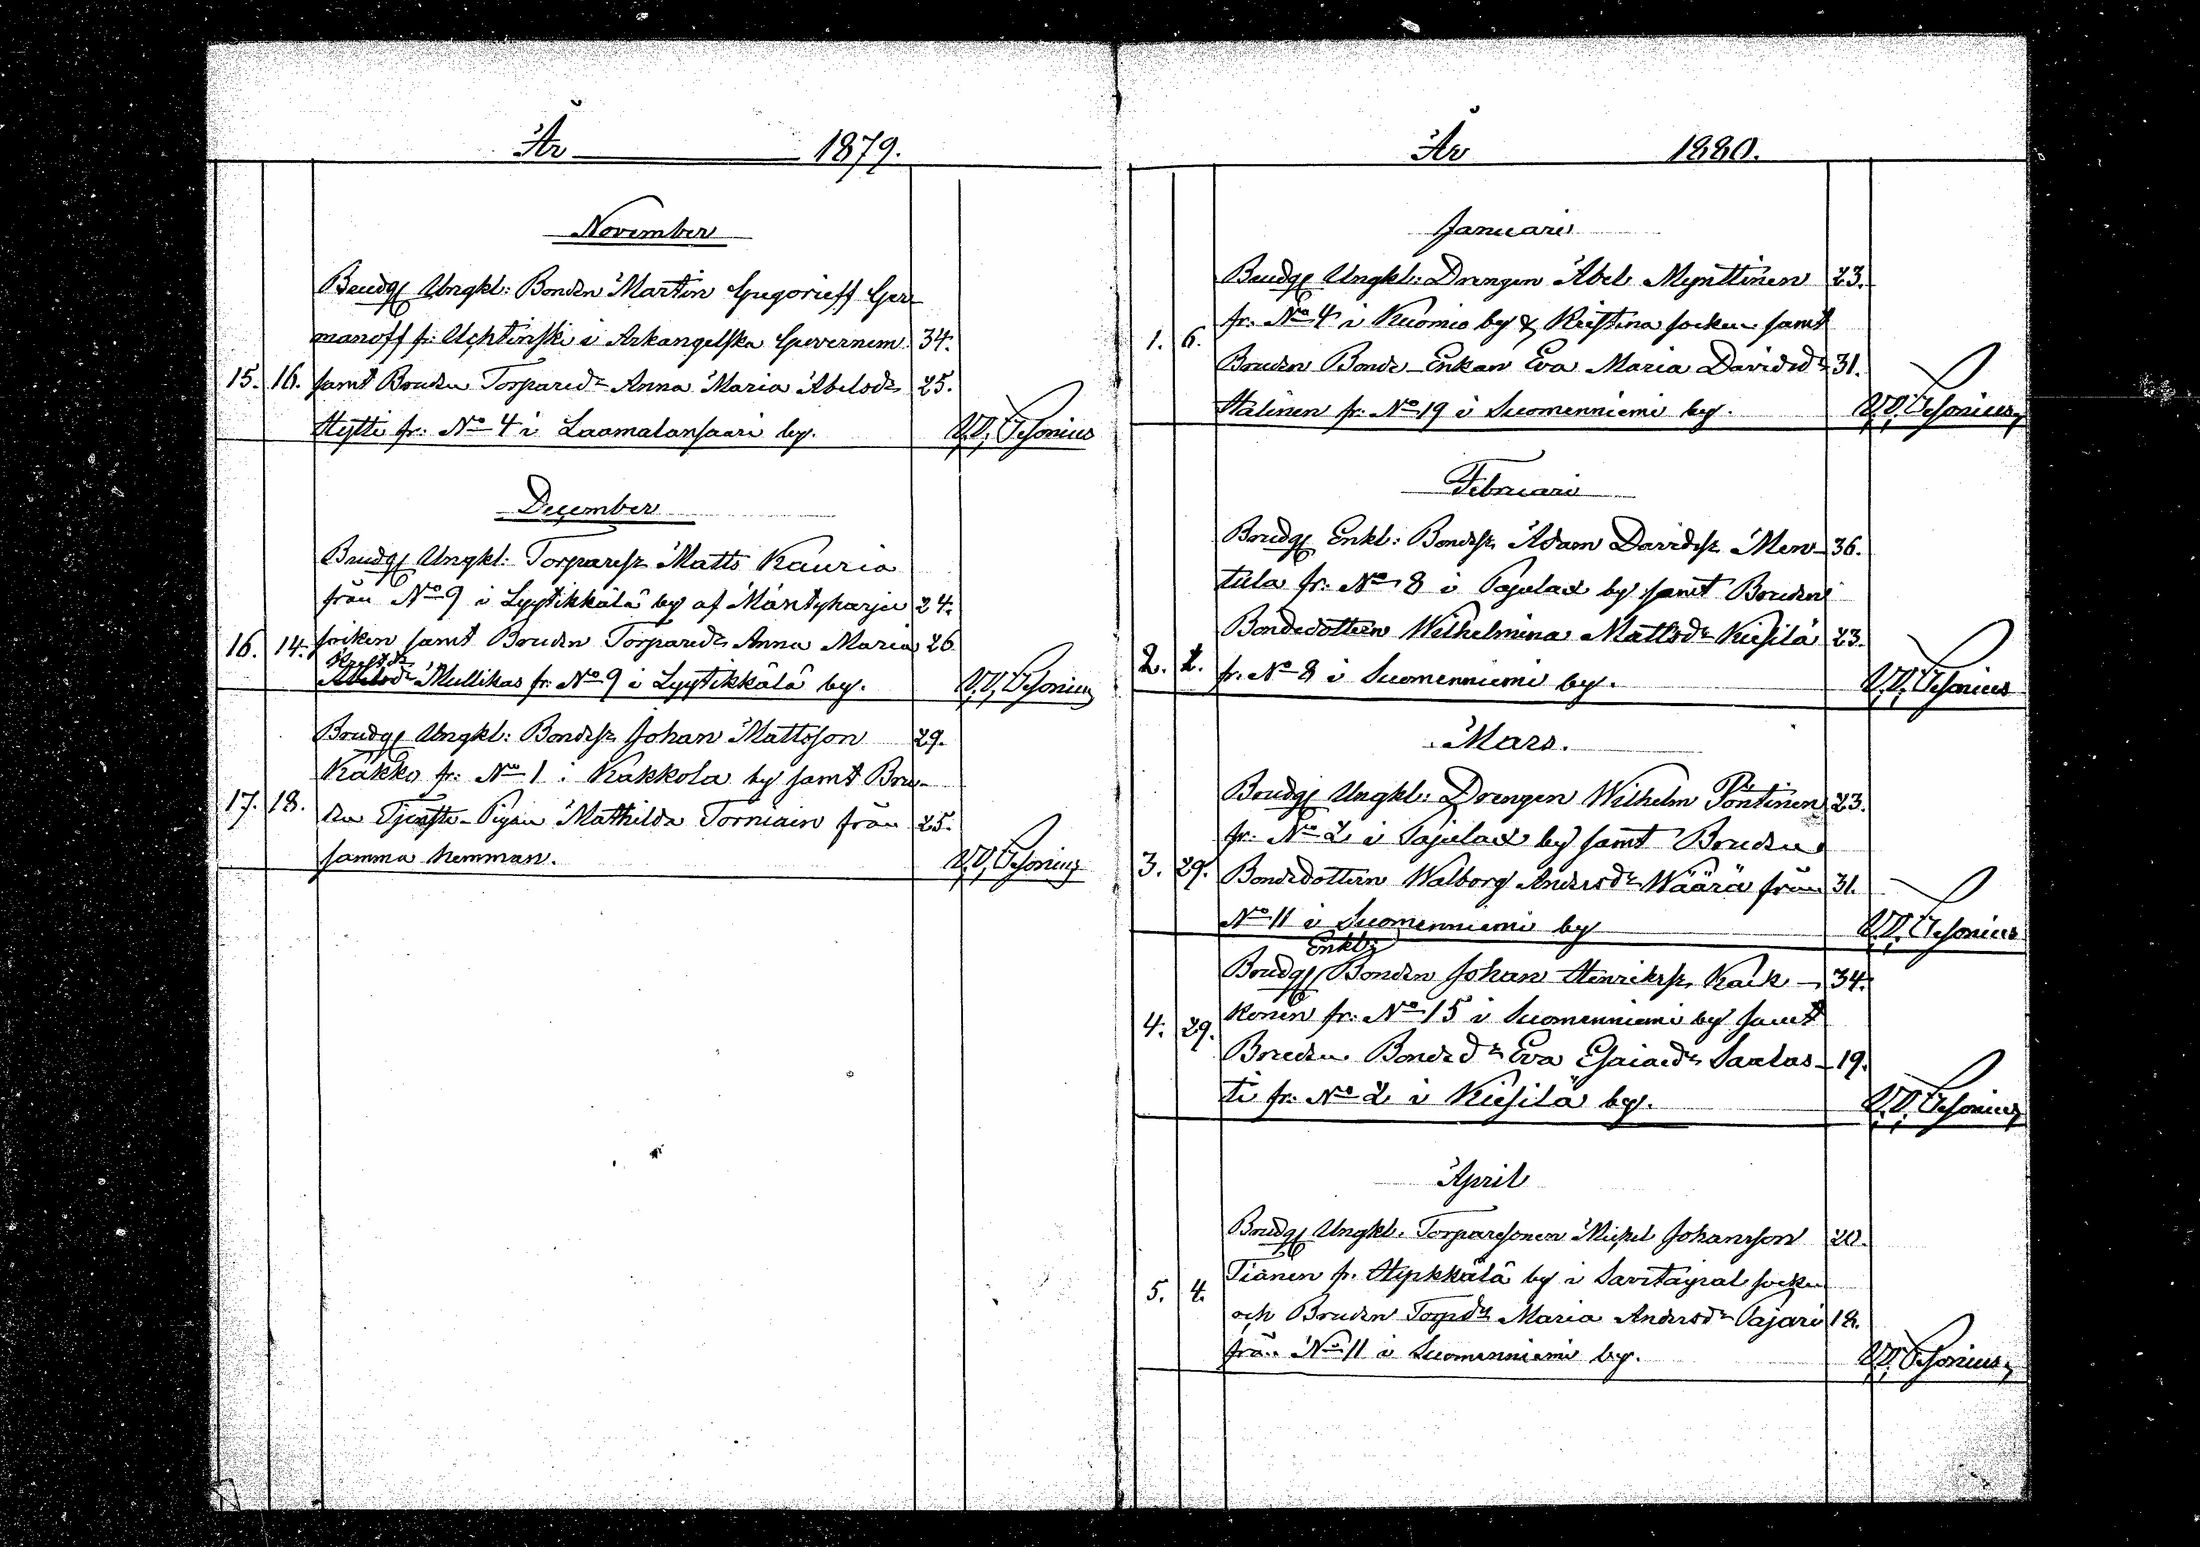 År 1879.
November
Brudg Ungkl: Bonden Martin Gregorieff Ger
manoff fr: Uchtinski i Arkangelska Guvernem. 34.
15. 16. samt Bruden Torpared:r Anna Maria Abelsd:r 25.
Hytti fr: No 4 i Laamalansaari by.
December
Brudg Ungkl: Torparesr Matts Kauria
från No 9 i Lyytikkälä by af Mäntyharju 24.
16. 14. socken samt Bruden Torpared:r Anna Maria 26
Mullikas fr: No 9 i Lyytikkälä by.
Brudg Ungkl: Bondesr Johan Mattsson 29.
Kakko fr: No 1 i Kakkola by samt Bru-
17. 18. den Tjenste-Pigan Mathilda Torniain från 25.
samma hemman.
År 1880.
Januari
Brudg Ungkl: Drengen Abel Mynttinen 23.
fr. No 4 i Kuomio by & Kristina socken samt
1. 6.
Bruden Bonde-Enkan Eva Maria Davidsd:r 31.
Halinen fr: No 19 i Suomenniemi by.
Februari
Brudg Enkl: Bondesr Adam Davidsr Men- 36.
tula fr: No 8 i Pajulax by samt Bruden
Bondedottern Wilhelmina Mattsd:r Kiesilä 23.
2. fr. No 8 i Suomenniemi by.
Mars.
Brudg Ungkl: Drengen Wilhelm Pöntinen 23.
fr. No 2 i Pajulax by samt Bruden
3. 29. Bondedottern Walborg Andersd:r Wäärä från 31.
No 11 i Suomenniemi by
Enkl:
Brudg Bonden Johan Henriksr Kaik- 34.
konen fr: No 15 i Suomenniemi by samt
4. 29.
Bruden Bonded:r Eva Esaiaed:r Saalas- 19.
ti fr: No 2 i Kiesilä by.
April
Brudg Ungkl. Torparesonen Mickel Johansson 20.
Tiänen fr. Hypkkälä by i Savitaipal socken
5. 4.
och Bruden Torpd:r Maria Andersd:r Pajari 18.
från No 11 i Suomenniemi by.